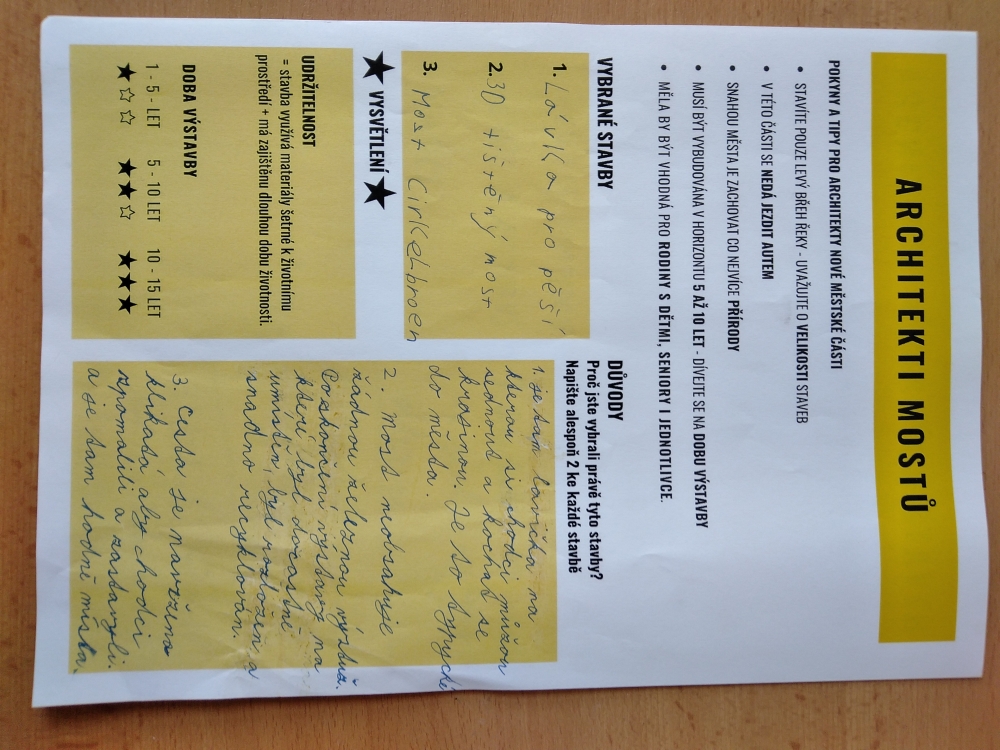 ARCHITEKTI MOSTŮ
POKYNY A TIPY PRO ARCHITEKTY NOVÉ MĚSTSKÉ ČÁSTI
• STAVÍTE POUZE LEVÝ BŘEH ŘEKY - UVAŽUJTE O VELIKOSTI STAVEB
• V TÉTO ČÁSTI SE NEDÁ JEZDIT AUTEM
• SNAHOU MĚSTA JE ZACHOVAT CO NEJVÍCE PŘÍRODY
• MUSÍ BÝT VYBUDOVÁNA V HORIZONTU 5 AŽ 10 LET - DÍVEJTE SE NA DOBU VÝSTAVBY
• MĚLA BY BÝT VHODNÁ PRO RODINY S DĚTMI, SENIORY I JEDNOTLIVCE.
VYBRANÉ STAVBY
1. Lávka pro pěší
2. 3D tištěný most
3. Most Cirkelbroen
★ VYSVĚTLENÍ ★
UDRŽITELNOST
= stavba využívá materiály šetrné k životnímu
prostředí + má zajištěnu dlouhou dobu životnosti.
DOBA VÝSTAVBY
1 - 5 - LET 5 - 10 LET 10 - 15 LET
★☆☆ ★★☆ ★★★
DŮVODY
Proč jste vybrali právě tyto stavby?
Napište alespoň 2 ke každé stavbě
1. je tam lavička na
kterou si chodci můžou
sednout a kochat se
krásinou. Je to spychlé
do města.
2. Most neobsahuje
žádnou železnou výstuž.
Po skončení výstavy na
které byl dočastně
umístěn, byl rozložen a
snadno recyklován.
3. Cesta je navržena
klikatá aby chodci
zpomalili a zastavyli.
a je tam hodně místa.